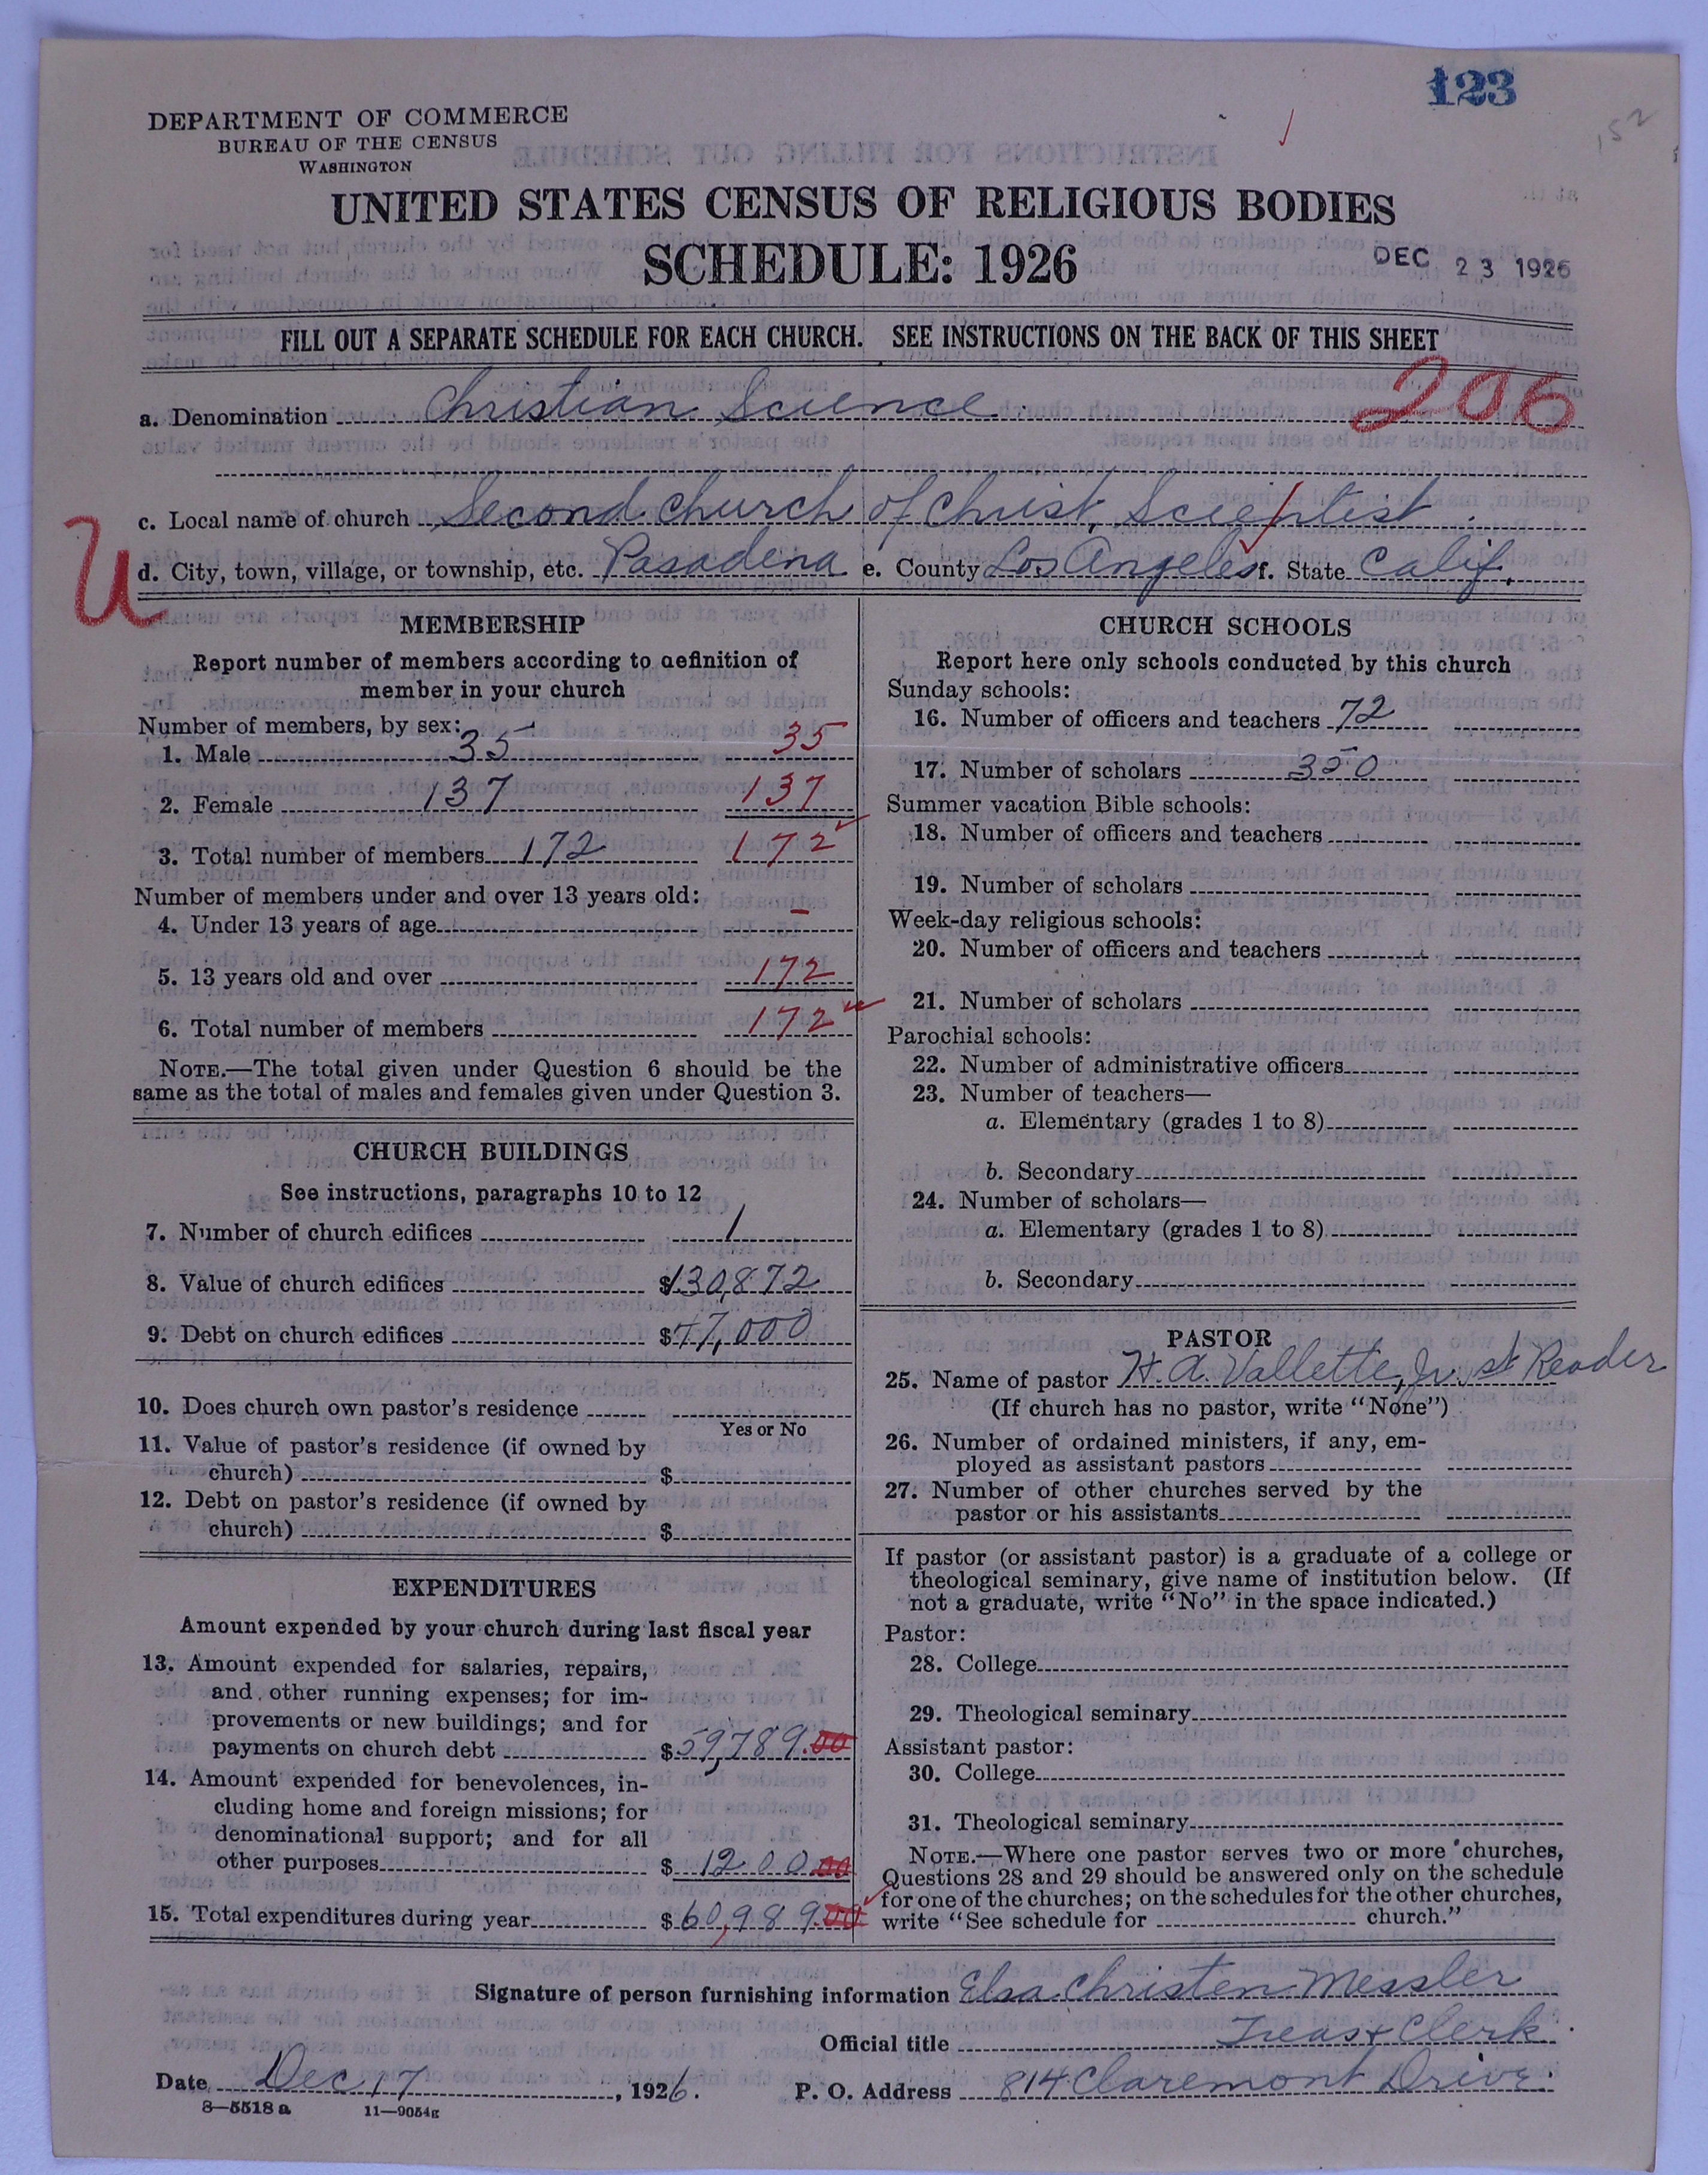 123
152
DEPARTMENT OF COMMERCE
BUREAU OF THE CENSUS
WASHINGTON
UNITED STATES CENSUS OF RELIGIOUS BODIES
SCHEDULE: 1926
DEC 23 1926
FILL OUT A SEPARATE SCHEDULE FOR EACH CHURCH. SEE INSTRUCTIONS ON THE BACK OF THIS SHEET
206
a. Denomination Christian Science
c. Local name of church Second Church of Christ, Scientist
U
d. City, town, village, or township, etc. Pasadena e. County Los Angeles f. State Calif.
MEMBERSHIP
Report number of members according to definition of
member in your church
Number of members, by sex:
1. Male 35 35
2. Female 137 137
3. Total number of members 172 172
Number of members under and over 13 years old:
4. Under 13 years of age –
5. 13 years old and over 172
6. Total number of members 172
NOTE.—The total given under Question 6 should be the
same as the total of males and females given under Question 3.
CHURCH BUILDINGS
See instructions, paragraphs 10 to 12
7. Number of church edifices 1
8. Value of church edifices $130,872
9. Debt on church edifices $77,000
10. Does church own pastor's residence
Yes or No
11. Value of pastor's residence (if owned by
church) $
12. Debt on pastor's residence (if owned by
church) $
EXPENDITURES
Amount expended by your church during last fiscal year
13. Amount expended for salaries, repairs,
and other running expenses; for im-
provements or new buildings; and for
payments on church debt $59,789.00
14. Amount expended for benevolences, in-
cluding home and foreign missions; for
denominational support; and for all
other purposes $1200.00
15. Total expenditures during year $60,989.00
CHURCH SCHOOLS
Report here only schools conducted by this church
Sunday schools:
16. Number of officers and teachers 72
17. Number of scholars 350
Summer vacation Bible schools:
18. Number of officers and teachers
19. Number of scholars
Week-day religious schools:
20. Number of officers and teachers
21. Number of scholars
Parochial schools:
22. Number of administrative officers
23. Number of teachers—
a. Elementary (grades 1 to 8)
b. Secondary
24. Number of scholars—
a. Elementary (grades 1 to 8)
b. Secondary
PASTOR
25. Name of pastor H. A. Vallette, Jr. st Reader
(If church has no pastor, write "None")
26. Number of ordained ministers, if any, em-
ployed as assistant pastors
27. Number of other churches served by the
pastor or his assistants
If pastor (or assistant pastor) is a graduate of a college or
theological seminary, give name of institution below. (If
not a graduate, write "No" in the space indicated.)
Pastor:
28. College
29. Theological seminary
Assistant pastor:
30. College
31. Theological seminary
NOTE.—Where one pastor serves two or more churches,
Questions 28 and 29 should be answered only on the schedule
for one of the churches; on the schedules for the other churches,
write "See schedule for church."
Signature of person furnishing information Elsa Christen Messler
Official title Treas & Clerk
Date Dec 17, 1926. P. O. Address 814 Claremont Drive.
8—5518 a 11—9054g